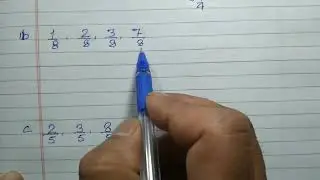 b. 1/8, 2/8, 3/8, 7/8
c. 2/5, 3/5, 8/5